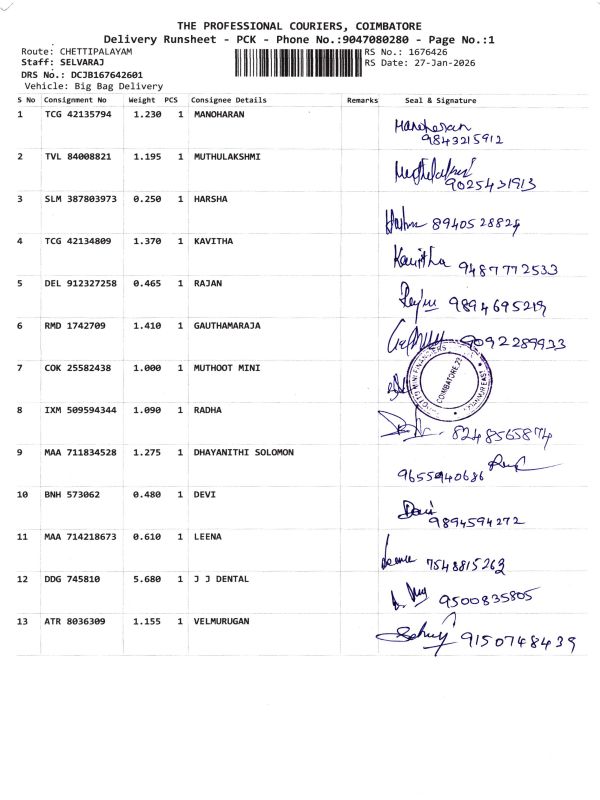 THE PROFESSIONAL COURIERS, COIMBATORE
Delivery Runsheet - PCK - Phone No.:9047080280 - Page No.:1
Route: CHETTIPALAYAM RS No.: 1676426
Staff: SELVARAJ RS Date: 27-Jan-2026
DRS No.: DCJB167642601
Vehicle: Big Bag Delivery
S No Consignment No Weight PCS Consignee Details Remarks Seal & Signature
1 TCG 42135794 1.230 1 MANOHARAN Manoharan
9843215912
2 TVL 84008821 1.195 1 MUTHULAKSHMI Muthulakshmi
9025431913
3 SLM 387803973 0.250 1 HARSHA
Harsha 8940528824
4 TCG 42134809 1.370 1 KAVITHA Kavitha 9487772533
5 DEL 912327258 0.465 1 RAJAN
9894695219
6 RMD 1742709 1.410 1 GAUTHAMARAJA 9092289933
7 COK 25582438 1.000 1 MUTHOOT MINI
COIMBATORE
8 IXM 509594344 1.090 1 RADHA
8248565874
9 MAA 711834528 1.275 1 DHAYANITHI SOLOMON
9655940686
10 BNH 573062 0.480 1 DEVI Devi
9894594272
11 MAA 714218673 0.610 1 LEENA
Leena 7548815263
12 DDG 745810 5.680 1 J J DENTAL
9500835805
13 ATR 8036309 1.155 1 VELMURUGAN
9150748439